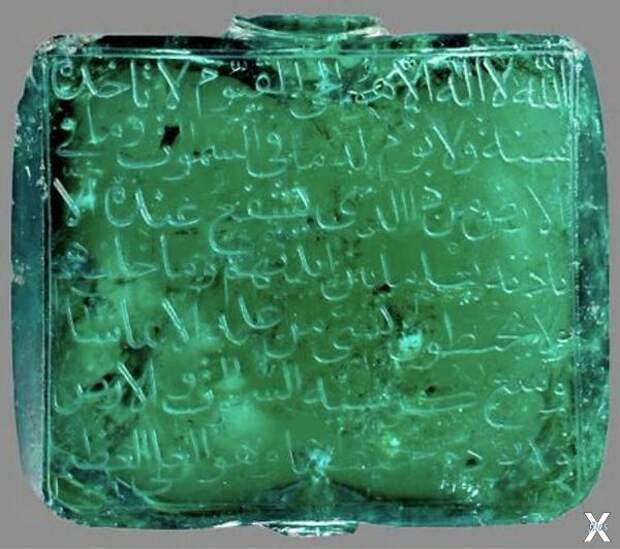 الله لا اله الا هو الحى القيوم لا تاخذه
سنة ولا نوم له ما فى السموات وما فى
الارض من ذا الذى يشفع عنده الا
باذنه يعلم ما بين ايديهم وما خلفهم
ولا يحيطون بشى من علمه الا بما شا
وسع كرسيه السموات والارض
ولا وهو العلى العظيم
X